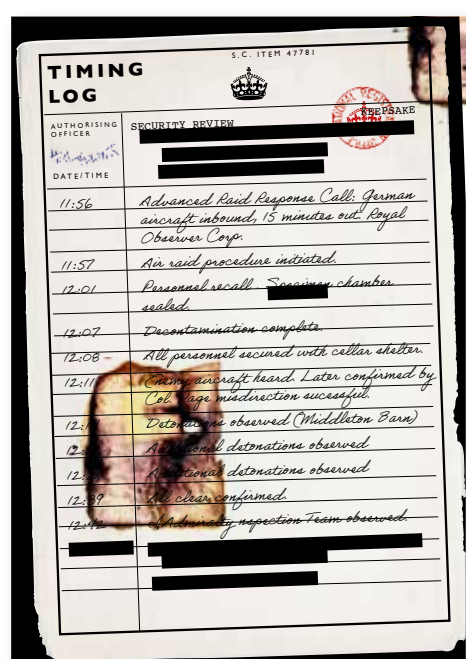 S.C. ITEM 47781
TIMING
LOG
KEEPSAKE
AUTHORISING
OFFICER
SECURITY REVIEW
DATE/TIME
11:56 Advanced Raid Response Call: German
aircraft inbound, 15 minutes out. Royal
Observer Corp.
11:57 Air raid procedure initiated.
12:01 Personnel recall. Specimen chamber
sealed.
12:07 Decontamination complete.
12:08 All personnel secured with cellar shelter.
12:11 Enemy aircraft heard. Later confirmed by
Col. Page misdirection sucessful.
Detonations observed (Middleton Barn)
Additional detonations observed
Additional detonations observed
12:39 All clear confirmed.
12:42 Admiralty nspection Team observed.